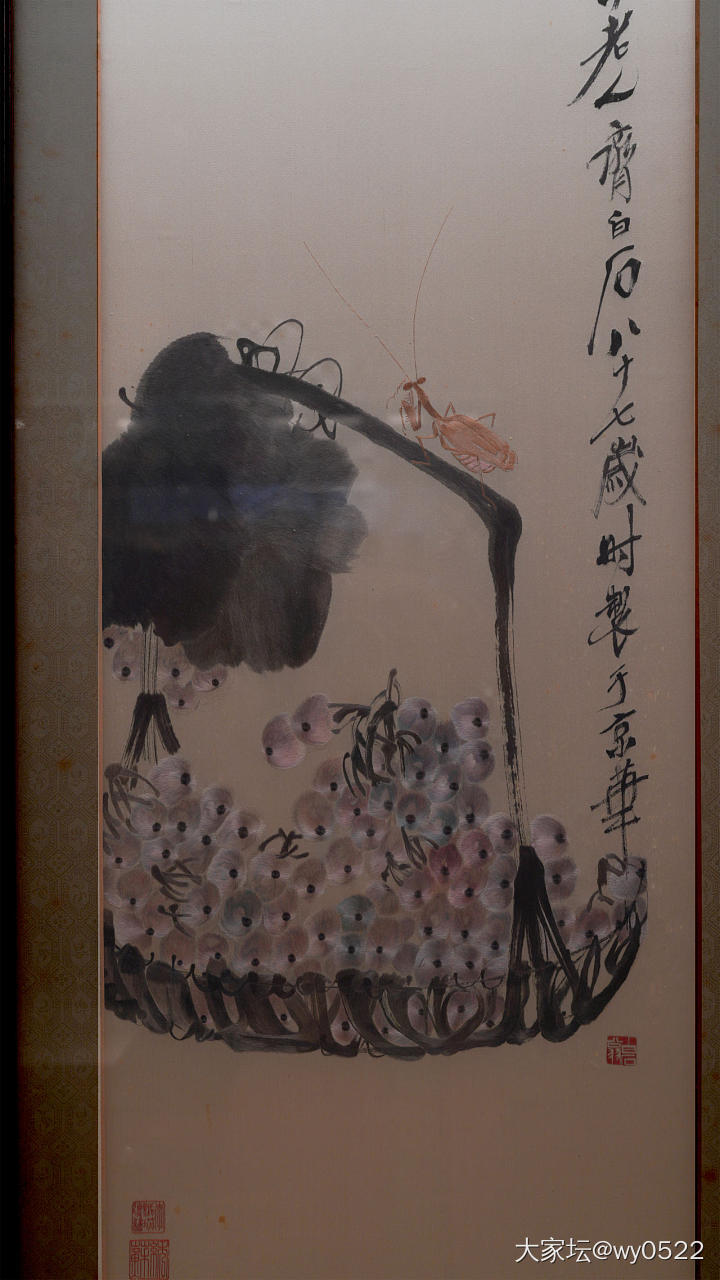 老人齊白石八十七歲时製于京華
大家坛@wy0522